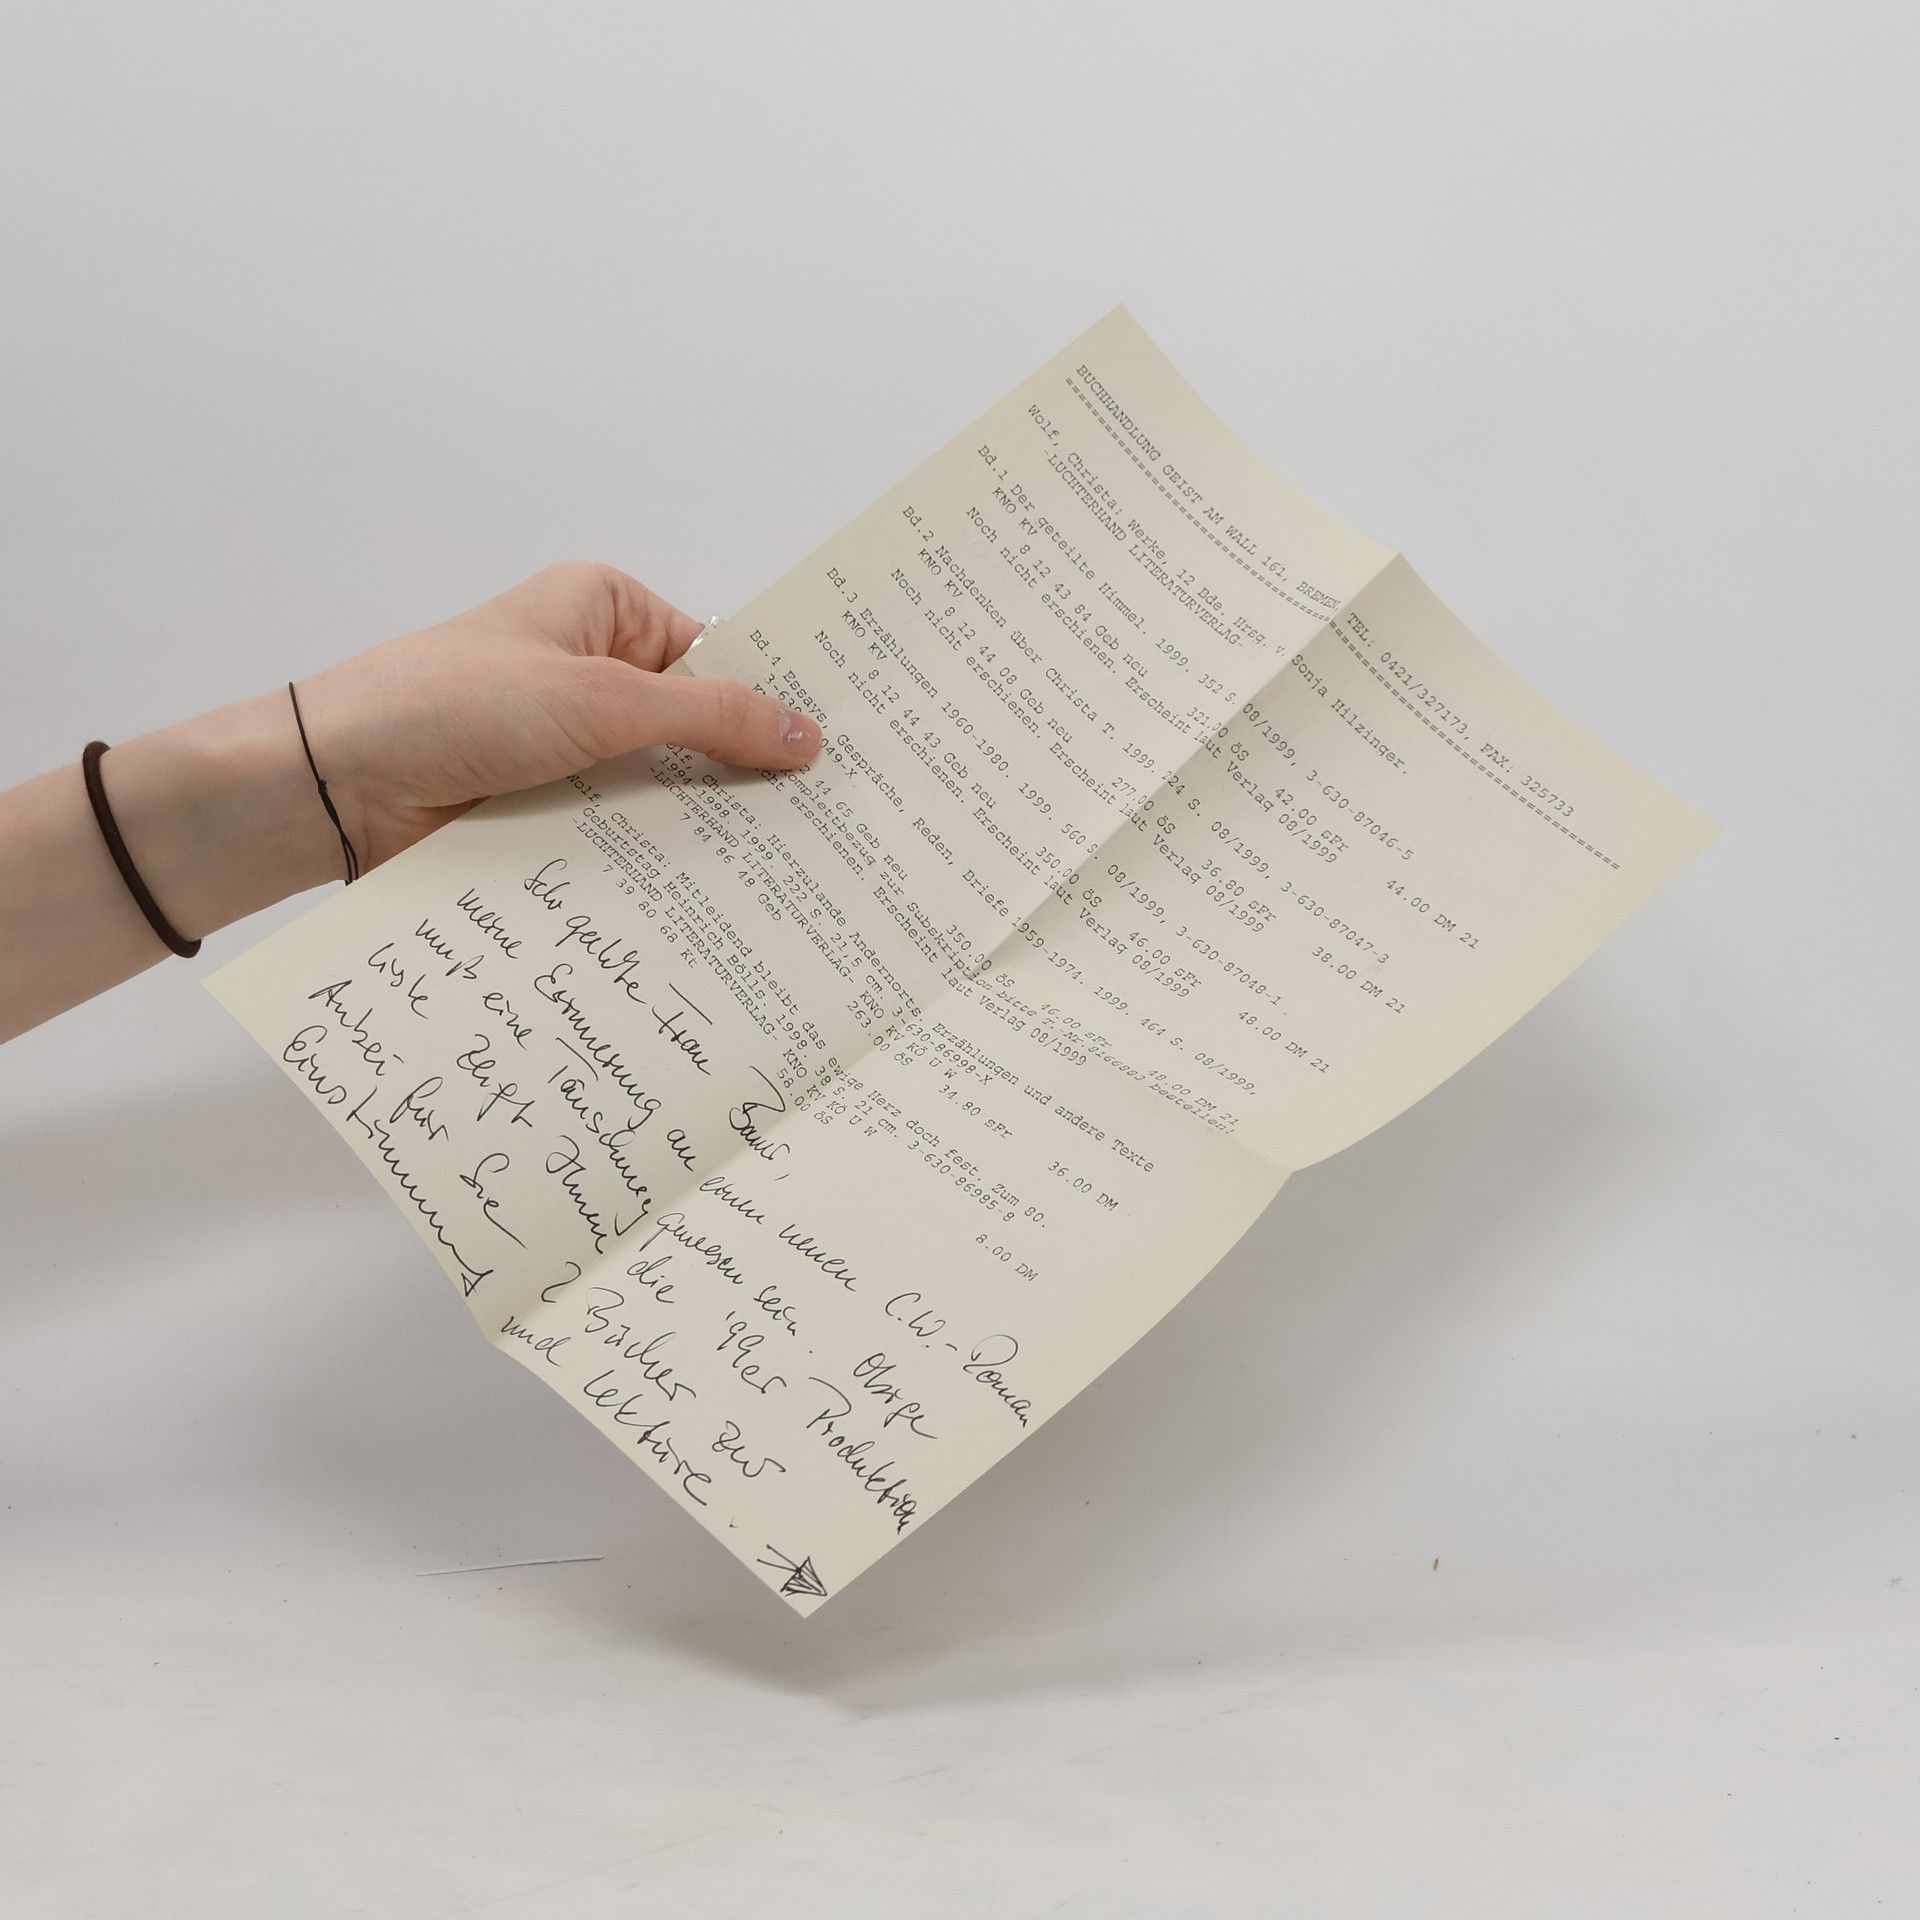 BUCHHANDLUNG GEIST AM WALL 161, BREMEN, TEL: 0421/327173, FAX: 325733
Wolf, Christa: Werke, 12 Bde. Hrsg. v. Sonja Hilzinger.
-LUCHTERHAND LITERATURVERLAG-
Bd.1 Der geteilte Himmel. 1999. 352 S. 08/1999, 3-630-87046-5
KNO KV 8 12 43 84 Geb neu 321.00 öS 42.00 sFr 44.00 DM 21
Noch nicht erschienen. Erscheint laut Verlag 08/1999
Bd.2 Nachdenken über Christa T. 1999. 224 S. 08/1999, 3-630-87047-3
KNO KV 8 12 44 08 Geb neu 277.00 öS 36.80 sFr 38.00 DM 21
Noch nicht erschienen. Erscheint laut Verlag 08/1999
Bd.3 Erzählungen 1960-1980. 1999. 560 S. 08/1999, 3-630-87048-1
KNO KV 8 12 44 43 Geb neu 350.00 öS 46.00 sFr 48.00 DM 21
Noch nicht erschienen. Erscheint laut Verlag 08/1999
Bd.4 Essays, Gespräche, Reden, Briefe 1959-1974. 1999. 464 S. 08/1999,
3-630 049-X
44 65 Geb neu 350.00 öS 46.00 sFr 48.00 DM 21
Komplettbezug zur Subskription bitte bestellen!
erschienen. Erscheint laut Verlag 08/1999
Christa: Hierzulande Andernorts. Erzählungen und andere Texte
1994-1998. 1999. 222 S. 21,5 cm. 3-630-86998-X
-LUCHTERHAND LITERATURVERLAG- KNO KV KÖ U W
7 84 86 48 Geb 263.00 öS 34.80 sFr 36.00 DM
Wolf, Christa: Mitleidend bleibt das ewige Herz doch fest. Zum 80.
Geburtstag Heinrich Bölls. 1998. 39 S. 21 cm. 3-630-86985-8
-LUCHTERHAND LITERATURVERLAG- KNO KV KÖ U W
7 39 80 68 Kt 58.00 öS 8.00 DM
Sehr geehrte Frau
meine Erinnerung an einen neuen C.W.-Roman
muß eine Täuschung gewesen sein. Obige
Liste zeigt Ihnen die '99er Produktion
Anbei für Sie 2 Bücher zur
Einstimmung und Lektüre.